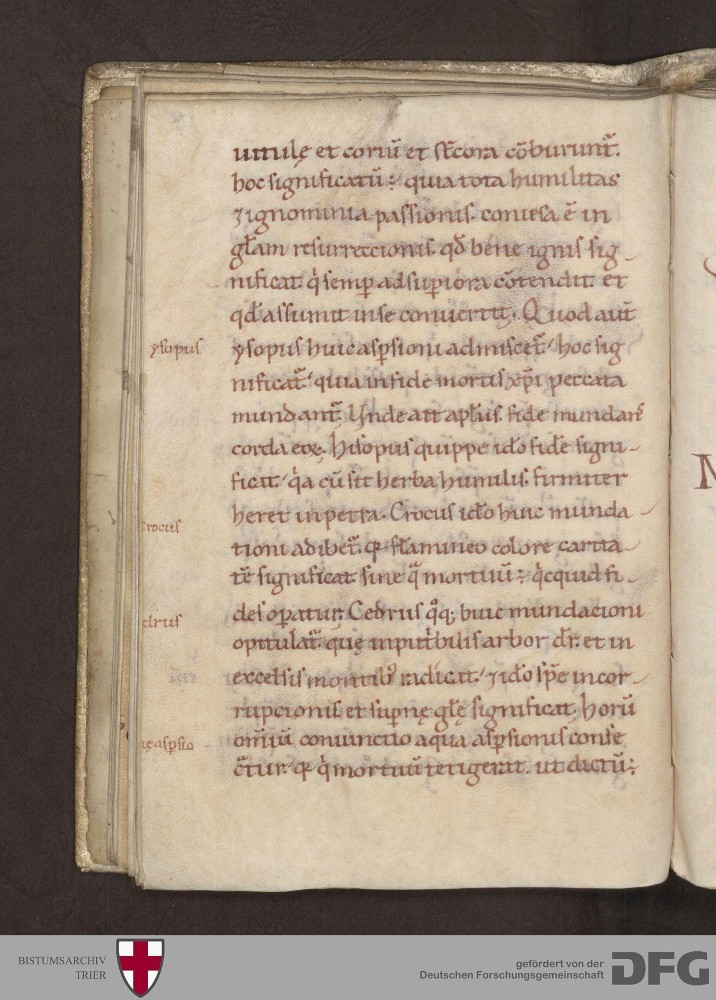 uitulę et coriū et st̄cora cōburunt᷑.
hoc significatū: quia tota humilitas
⁊ ignominia passionis. conuersa ē in
gl̄am resurrectionis. qđ bene ignis sig-
nificat. q̇ semꝑ ad suꝑiora cōtendit. et
qđ assumit in se conuertit. Quod aut̄
ysopus
ysopus huic asꝑsioni admiscet᷑. hoc sig
nificat᷑. quia in fide mortis xp̄i peccata
mundant᷑. Unde ait apl̄us. fide mundans
corda eoꝝ. Hisopus quippe iđo fidē signi-
ficat. q̇a cū sit herba humilis. firmiter
heret in petra. Crocus iđo huic munda-
crocus
tioni adibet᷑. qꝫ flāmineo colore carita-
tē significat. sine q̄ mortuū: q̇cquid fi-
des oꝑatur. Cedrus q̊qꝫ huic mundacioni
edrus
opitulat᷑. quę inputͥbilis arbor dr̄. et in
excelsis montibꝰ radicat. ⁊ iđo spē incor-
rupcionis. et suꝑnę gl̄ę significat. horū
om̄iū coniunctio aqua asꝑsionis confi
ę asꝑsio
c̄tur. qꝫ q̇ mortuū tetigerat. ut dictū:
N
BISTUMSARCHIV
TRIER
gefördert von der
Deutschen Forschungsgemeinschaft
DFG